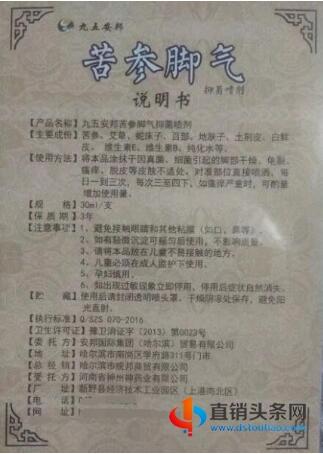 九五安邦
苦参脚气
抑菌喷剂
说明书
【产品名称】九五安邦苦参脚气抑菌喷剂
【主要成份】苦参、艾草、蛇床子、百部、地肤子、土荆皮、白鲜
皮、维生素E、维生素B、纯化水等。
【使用方法】将本品涂抹于因真菌、细菌引起的脚部干燥、龟裂、
瘙痒、脱皮等皮肤不适处，对准部位直接喷洒，每
日一到三次，每次三至四下，如瘙痒严重时，可酌量
增加使用量。
【规 格】30ml/支
【保 质 期】3年
【注意事项】1、避免接触眼睛和其他粘膜（如口、鼻等）。
2、如有轻微沉淀可摇匀后使用，不影响质量。
3、请将本品放在儿童不易接触的地方。
4、儿童必须在成人监护下使用。
5、孕妇慎用。
6、如出现过敏现象立即停用，停用后症状自然消失。
【贮 藏】使用后请封闭透明喷头罩，干燥阴凉处保存，避免阳
光直射。
【执行标准】Q/SZS 070-2016
【卫生许可证】豫卫消证字（2013）第0023号
【委 托 方】安邦国际集团（哈尔滨）贸易有限公司
【地 址】哈尔滨市南岗区学府路311号门市
【总 经 销】哈尔滨市统邦商贸有限公司
【受 托 方】河南省神州神药业有限公司
【地 址】新野县经济技术工业园区（上港南北区）
【电 话】
【网 址】
直销头条网
www.dstoutiao.com